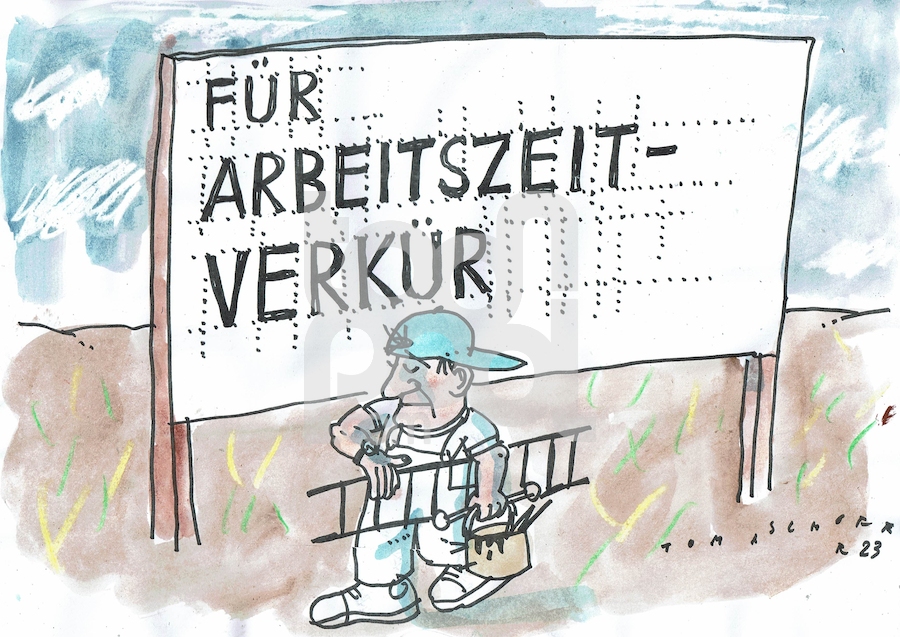 FÜR
ARBEITSZEIT-
VERKÜR
TOMASCHOFF
R 23